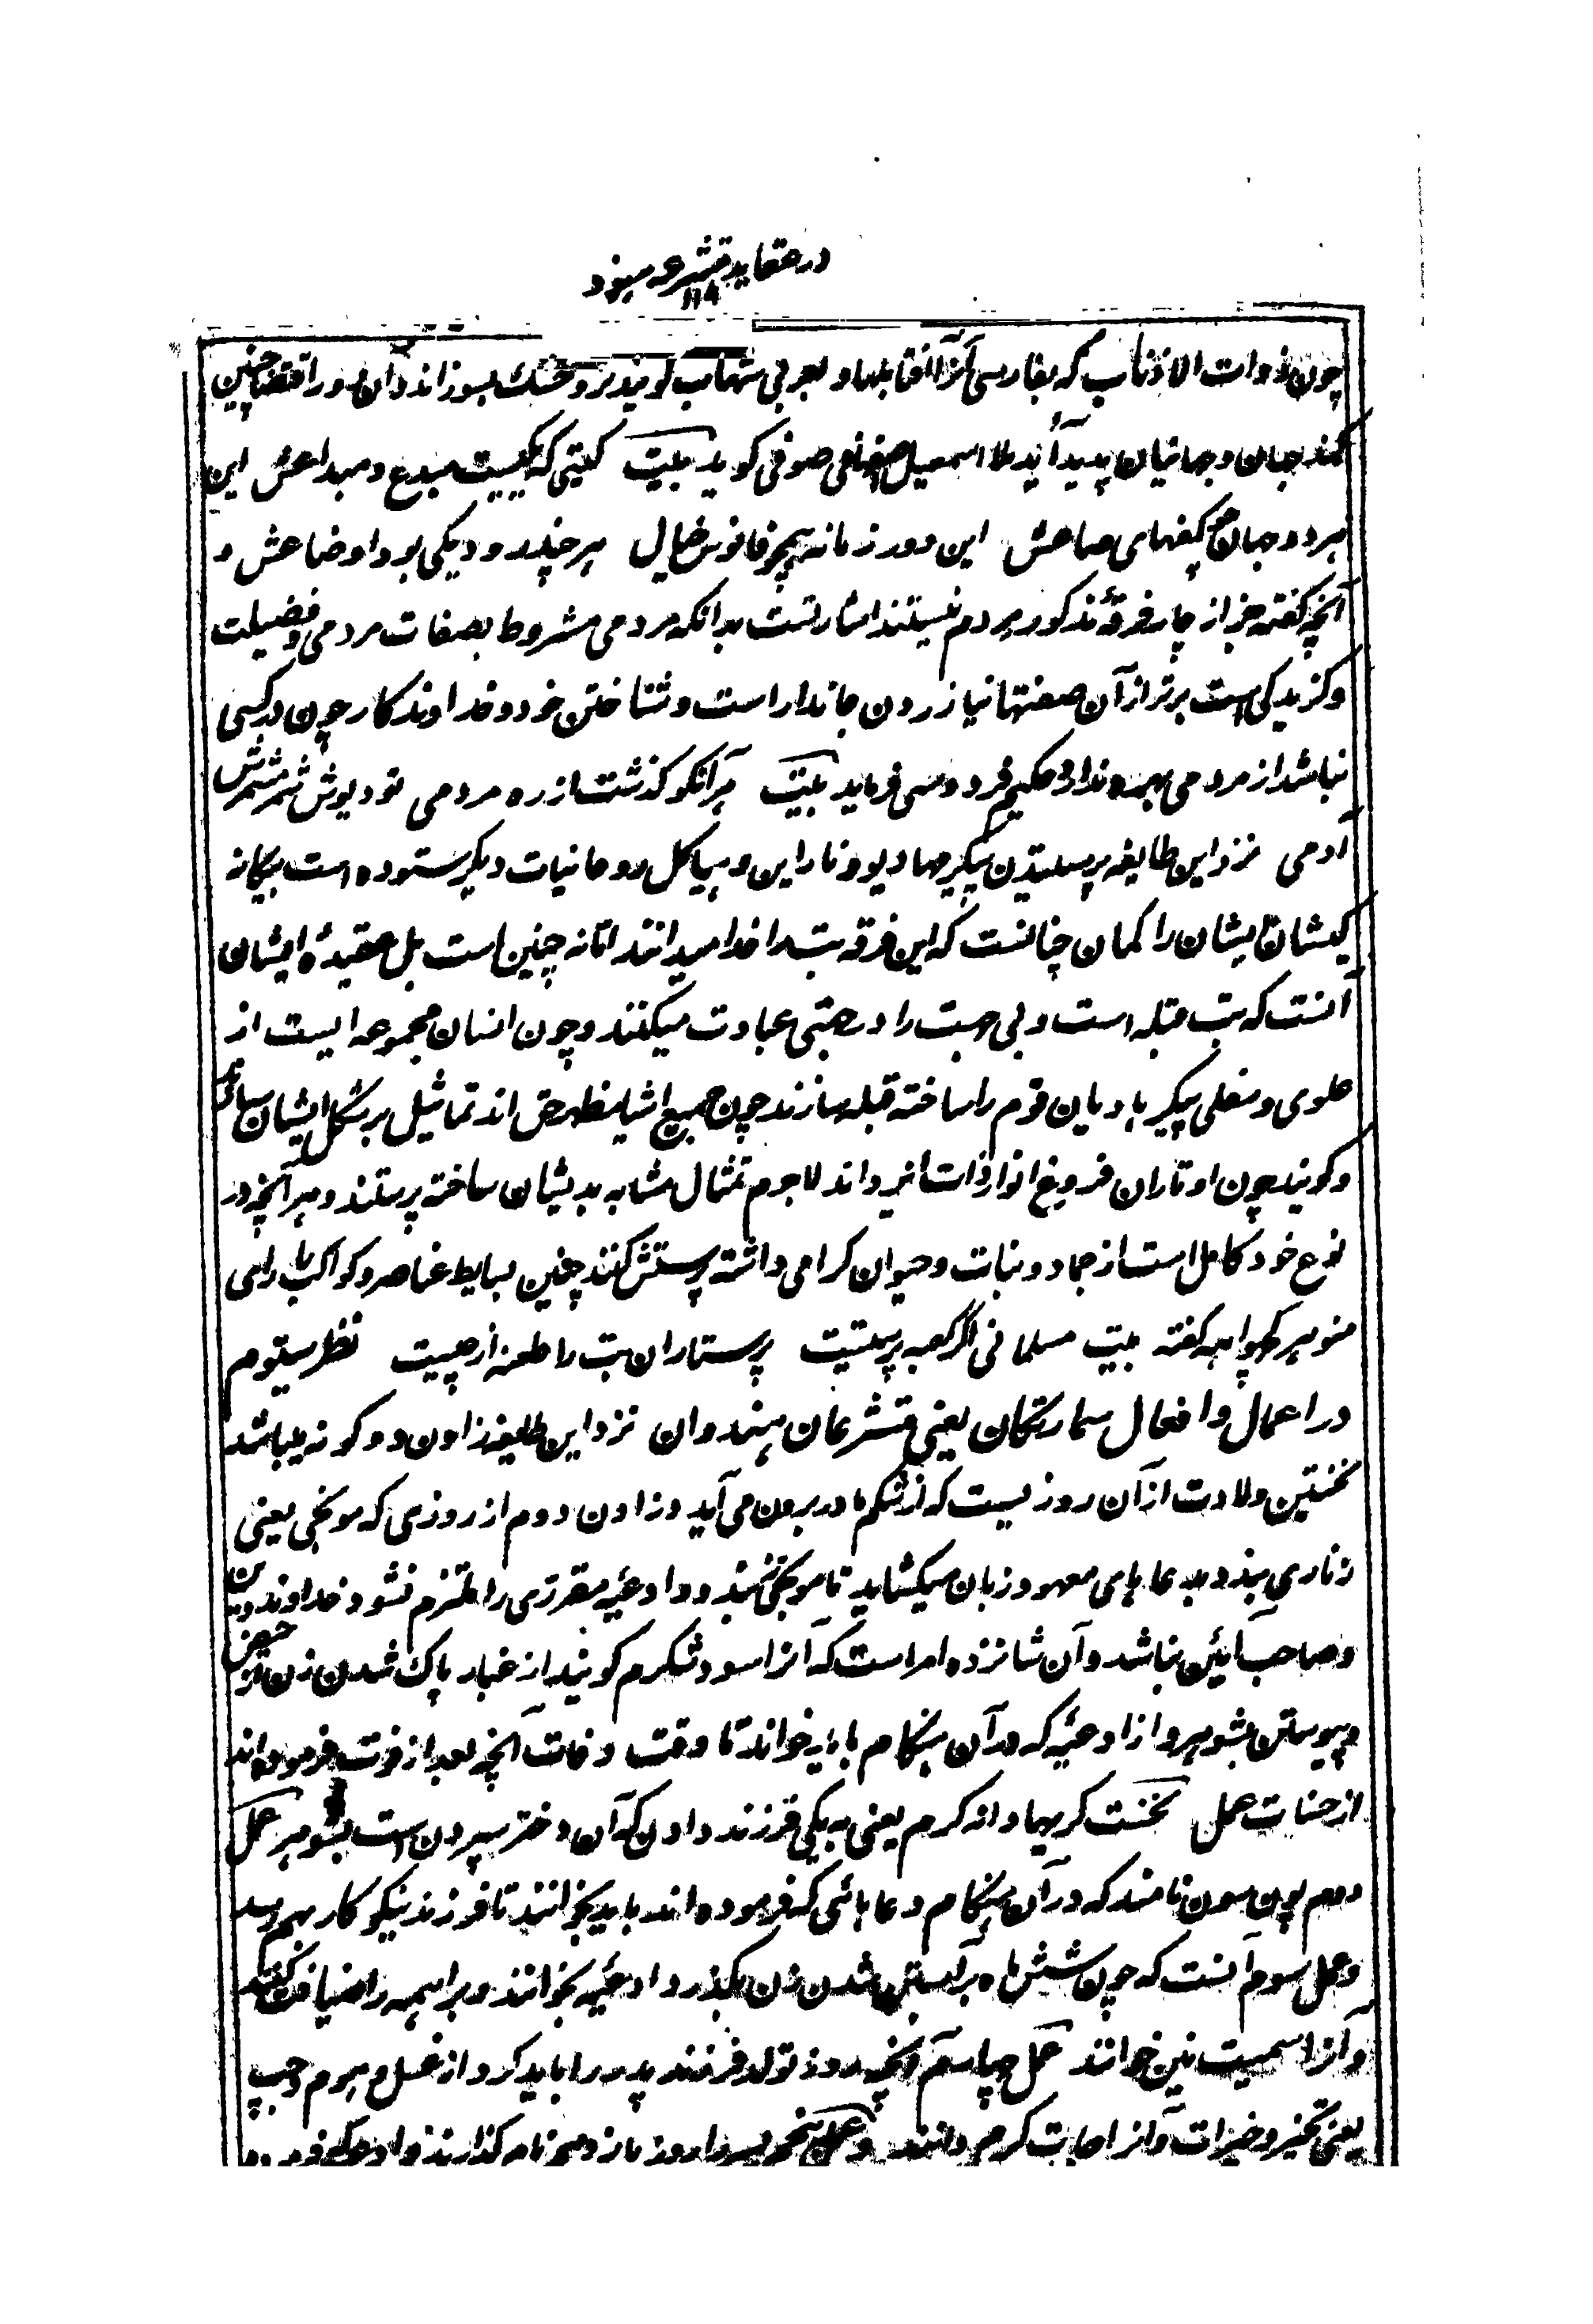 در عقاید متشرعه هنود
۱۱۴
چون ذوات الاذناب که بفارسی آنرا آفتابها و بعربی شهاب گویند تر و خشک بسوزاند و آن دور اقتضا چنین
کند جهان و جهانیان پدید آید ملا اسمعیل اصفهانی صوفی گوید بیت گیتی که یکیست مبدع و مبداعش این
هر دو جهان چو کفهای صاعش این دور زمانه همچو فانوس خیال هر چند دو دیگی بود اوضاعش و
آنچه گفته جز از چار فرقه مذکور مردم نیستند اشارتست بدانکه مردمی مشروط بصفات مردمی و فضیلت
و گزیدگی است برتر از آن صفتها نیازردن جاندار است و شناختن خود و خداوندکار چون در کسی
نباشد از مردمی بهره ندارد حکیم فردوسی فرماید بیت هر آنکو گذشت از ره مردمی تو دیوش شمر مشمرش
آدمی نزد این طایفه پرستیدن پیکر مهادیو و ناراین و هیاکل روحانیات دیگر ستوده است بیگانه
کیشان ایشان را گمان چنانست که این فرقه بت را خدا میدانند اما نه چنین است بل عقیدهٔ ایشان
آنست که بت قبله است و بی جهت را در جهتی عبادت میکنند و چون انسان مجموعه ایست از
علوی و سفلی پیکر هادیان قوم را ساخته قبله سازند چون جمیع اشیا مظهر حق اند تماثیل بر شکل ایشان سازند
و گویند چون اوتاران فروغ انوار ذات ایزد اند لاجرم تمثال مشابه بدیشان ساخته پرستند و هر آنچه در
نوع خود کامل است از جماد و نبات و حیوان گرامی داشته پرستش کنند چنین بسایط عناصر و کواکب را رای
منوهر کچواهه گفته بیت مسلمانی اگر کعبه پرستیست پرستاران بت را طعنه از چیست نظر سیوم
در اعمال و افعال سمارتکان یعنی متشرعان هندوان نزد این طایفه زادن دو گونه میباشد
نخستین ولادت از آن روزیست که از شکم مادر برون می آید و زادن دوم از روزی که مونجی یعنی
زناری بندد بدعاهای معهود زبان میکشاید تا مونجی نبندد و ادعیه مقرری را ملتزم نشود خداوند دین
و صاحب آئین نباشد و آن شانزده امر است که آنرا سودشکرم گویند از غبار پاک شدن زن از حیض
و پیوستن بشوهر و از ادعیه که در آن هنگام باید خواند تا وقت وفات آنچه بعد از فوت فرموده اند
از حسنات عمل نخست کربهادانه کرم یعنی به یکی فرزند دادن که آن دختر سپردن است بشوهر عمل
دوم پون سون نامند که در آن هنگام دعاهائی که فرموده اند باید بخوانند تا فرزند نیکوکار بهم رسد
و عمل سوم آنست که چون شش ماه بر آبستن شدن زن بگذرد ادعیه بخوانند و براهمه را ضیافت کنند
و آنرا سمیت نین خوانند عمل چهارم آنچه روز تولد فرزند پدر را باید کرد از غسل و هوم و جپ
یعنی تخیر و خیرات و آنرا جات کرم دانند و عمل پنجم روز یازدهم نام گذارند و ادعیه